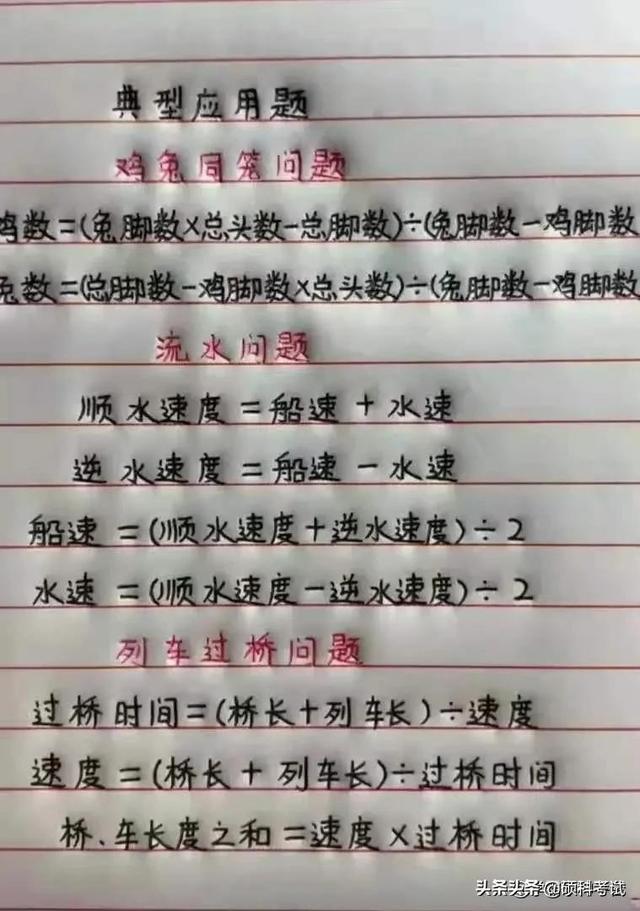 典型应用题
鸡兔同笼问题
鸡数=(兔脚数×总头数-总脚数)÷(兔脚数-鸡脚数
兔数=(总脚数-鸡脚数×总头数)÷(兔脚数-鸡脚数
流水问题
顺水速度=船速+水速
逆水速度=船速-水速
船速=(顺水速度+逆水速度)÷2
水速=(顺水速度-逆水速度)÷2
列车过桥问题
过桥时间=(桥长+列车长)÷速度
速度=(桥长+列车长)÷过桥时间
桥、车长度之和=速度×过桥时间
头条头条@硕科考试